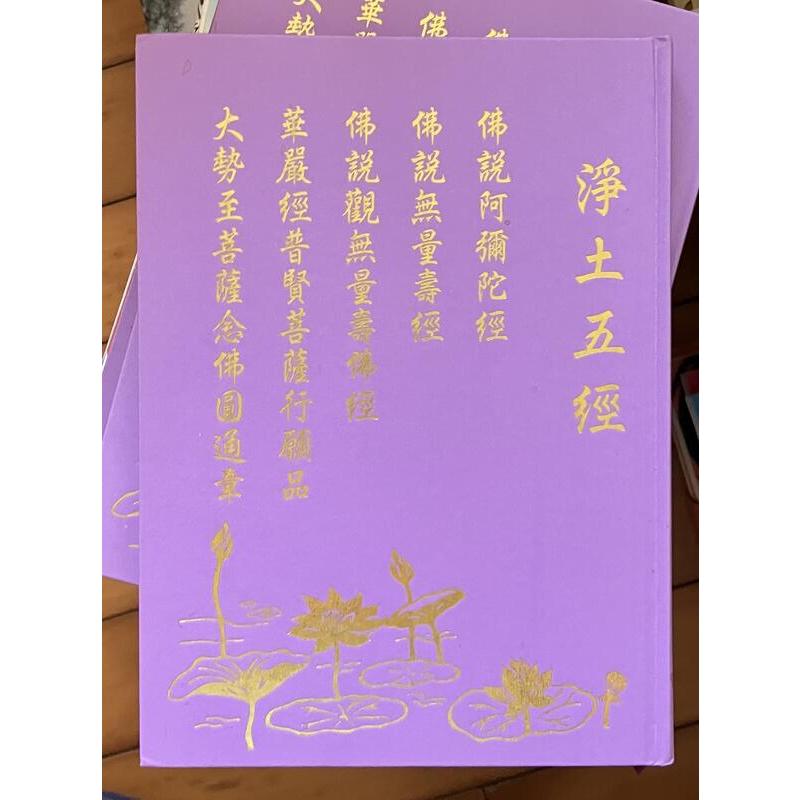 淨土五經
佛說阿彌陀經
佛說無量壽經
佛說觀無量壽佛經
華嚴經普賢菩薩行願品
大勢至菩薩念佛圓通章
佛
佛
華嚴
大勢